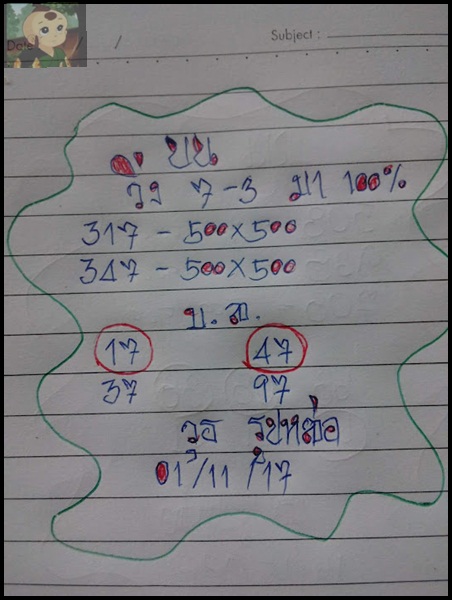 Date
Subject :
บน
วิ่ง 7-3 มา 100%
317 - 500x500
347 - 500x500
บ.ล.
17 47
37 97
รูปหล่อ
01/11/17